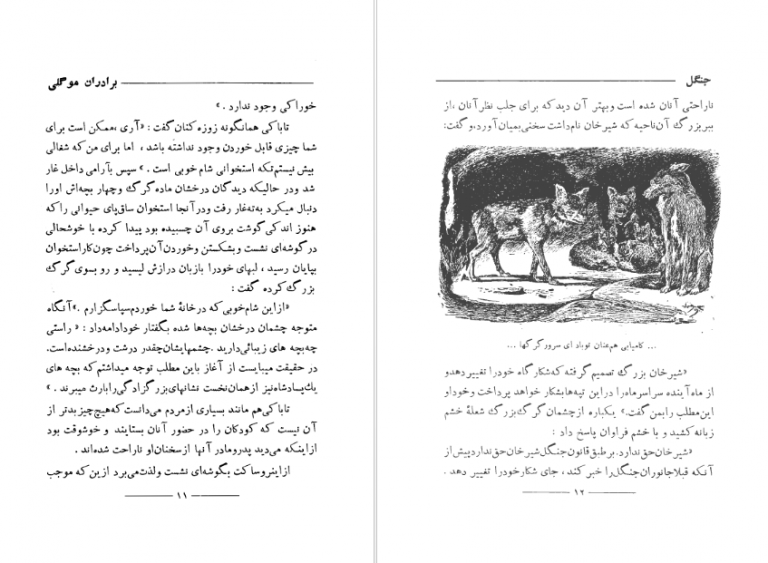 برادران موگلی
خوراکی وجود ندارد . »
تاباکی همانگونه زوزه کنان گفت : «آری ،ممکن است برای
شما چیزی قابل خوردن وجود نداشته باشد ، اما برای من که شغالی
بیش نیستم تکه استخوانی شام خوبی است . » سپس بآرامی داخل غار
شد ودر حالیکه دیدگان درخشان ماده گرگ وچهار بچه‌اش اورا
دنبال میکرد به‌ته‌غار رفت ودرآنجا استخوان ساق‌پای حیوانی راکه
هنوز اندکی گوشت بروی آن چسبیده بود پیدا کرده با خوشحالی
درگوشه‌ای نشست وبشکستن وخوردن آن پرداخت چون‌کاراستخوان
بپایان رسید ، لبهای خودرا بازبان درازش لیسید و رو بسوی گرگ
بزرگ کرده گفت :
«ازاین شام‌خوبی که درخانهٔ شما خوردم‌سپاسگزارم .» آنگاه
متوجه چشمان درخشان بچه‌ها شده بگفتار خودادامه‌داد : « راستی
چه‌بچه های زیبائی‌دارید .چشمهایشان‌چقدر درشت ودرخشنده‌است.
در حقیقت میبایست از آغاز باین مطلب توجه میداشتم‌که بچه های
یك‌پادشاه‌نیز ازهمان‌نخست نشانهای‌بزرگزادگی‌رابارث میبرند . »
تاباکی‌هم مانند بسیاری ازمردم می‌دانست که‌هیچ‌چیز بدتر از
آن نیست که کودکان را در حضور آنان بستایند و خوشوقت بود
ازاینکه می‌دید پدرومادر آنها ازسخنان‌او ناراحت شده‌اند .
ازاینروساکت بگوشه‌ای نشست ولذت‌می‌برد ازین‌که موجب
۱۱
جنگل
ناراحتی آنان شده است وبهتر آن دیدکه برای جلب نظر آنان ،از
ببر بزرگ آن‌ناحیه که شیرخان نام‌داشت سخنی‌بمیان آورد،و گفت:
... کامیابی هم‌عنان توباد ای سرور گرگها ...
«شیرخان بزرگ تصمیم گرفته که‌شکارگاه خودرا تغییردهدو
از ماه آینده سراسرماه‌را دراین تپه‌هابشکار خواهد پرداخت وخوداو
این‌مطلب رابمن‌گفت.» یکباره ازچشمان گرگ‌بزرگ شعلهٔ خشم
زبانه کشید و با خشم فراوان پاسخ داد :
«شیرخان‌حق ندارد.بر طبق‌قانون جنگل‌شیرخان‌حق نداردپیش از
آنکه قبلاجانوران جنگل‌را خبر کند ، جای شکار خودرا تغییر دهد .
۱۲